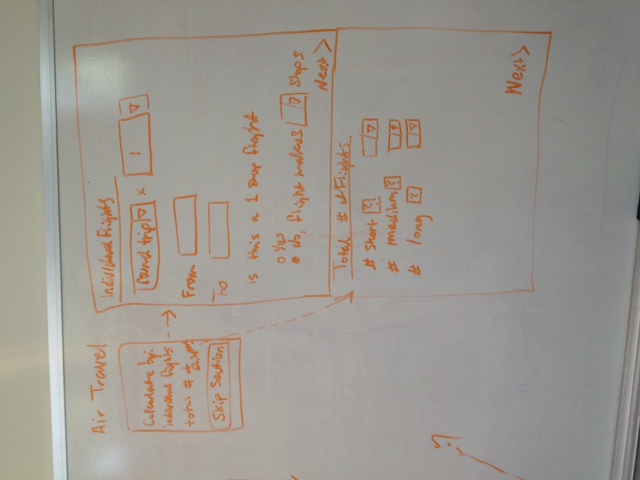 Air Travel
Calculate by:
individual flights
total # of flights
Skip Section
Individual Flights
round trip x 1
From
To
is this a 1 stop flight
Yes
No, flight makes stops
Next >
Total # of Flights
# short ?
# medium ?
# long ?
Next >